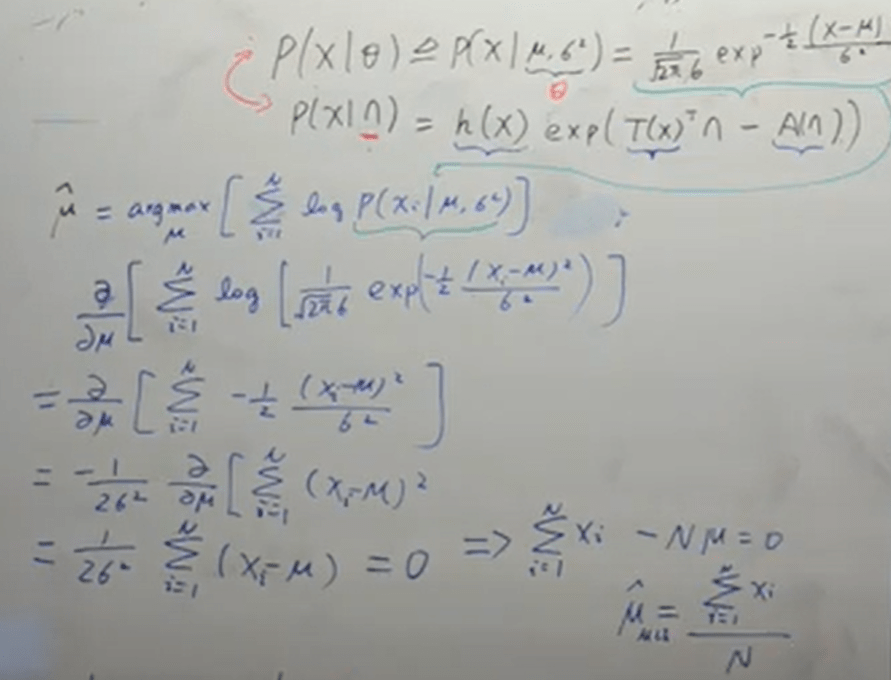 P(x|θ) ≜ P(x|μ, σ²) = 1/(√2π σ) exp -1/2 (x-μ)/σ²
θ
P(x|η) = h(x) exp(T(x)ᵀη - A(η))
μ̂ = argmax_μ [ Σ_{i=1}^{N} log P(xᵢ|μ, σ²) ]
∂/∂μ [ Σ_{i=1}^{N} log [ 1/(√2π σ) exp(-1/2 (xᵢ-μ)²/σ²) ]
= ∂/∂μ [ Σ_{i=1}^{N} -1/2 (xᵢ-μ)²/σ² ]
= -1/2σ² ∂/∂μ [ Σ_{i=1}^{N} (xᵢ-μ)²
= 1/2σ² Σ_{i=1}^{N} (xᵢ-μ) = 0 => Σ_{i=1}^{N} xᵢ - Nμ = 0
μ̂_{MLE} = Σ_{i=1}^{N} xᵢ / N